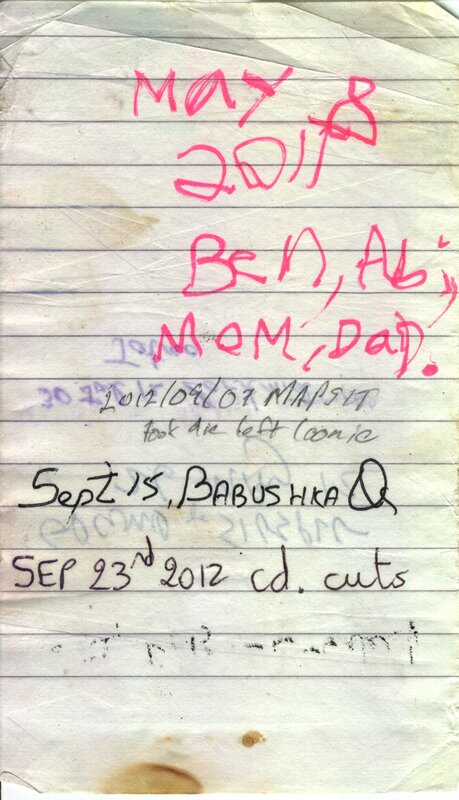 MAY 8
2011
Ben, Abi,
MOM, DaD.
2012/09/07 MAPSIT
took die left loonie
Sept 15, BABUSHKA
SEP 23rd 2012 cd. cuts